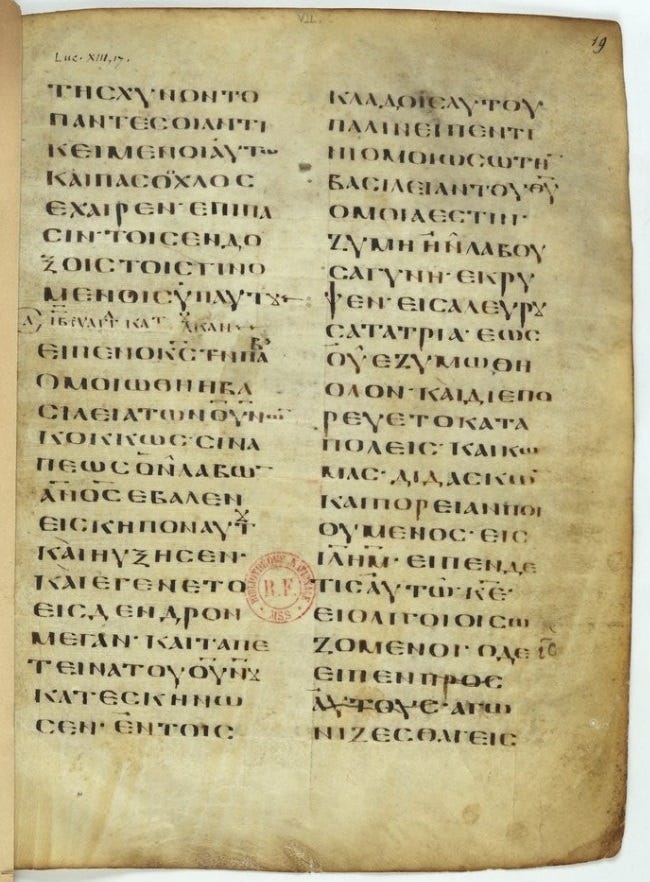 VII.
19
Luc. XIII, 17.
ΤΗϹΧΥΝΟΝΤΟ
ΠΑΝΤΕϹΟΙΑΝΤΙ
ΚΕΙΜΕΝΟΙΑΥΤω
ΚΑΙΠΑϹΟΧΛΟϹ
ΕΧΑΙΡΕΝ·ΕΠΙΠΑ
ϹΙΝ·ΤΟΙϹΕΝΔΟ
ΞΟΙϹΤΟΙϹΓΙΝΟ
ΜΕΝΟΙϹΥΠΑΥΤȣ
ΕΙΠΕΝΟΚ̅Ϲ̅ΤΗΠΑ
ΟΜΟΙωΘΗΗΒΑ
ϹΙΛΕΙΑΤωΝΟΥΝω̅
ΚΟΚΚωϹ·ϹΙΝΑ
ΠΕωϹΟΝΛΑΒω̅
Α̅Ν̅Ο̅Ϲ̅ΕΒΑΛΕΝ
ΕΙϹΚΗΠΟΝΑΥΤȣ
ΚΑΙΗΥΞΗϹΕΝ·
ΚΑΙΕΓΕΝΕΤΟ
ΕΙϹΔΕΝΔΡΟΝ
ΜΕΓΑΝ·ΚΑΙΤΑΠΕ
ΤΕΙΝΑΤΟΥΟΥΝȣ
ΚΑΤΕϹΚΗΝω
ϹΕΝ·ΕΝΤΟΙϹ
ΚΛΑΔΟΙϹΑΥΤΟΥ
ΠΑΛΙΝΕΙΠΕΝΤΙ
ΝΙΟΜΟΙωϹωΤΗ̅
ΒΑϹΙΛΕΙΑΝΤΟΥΘ̅Υ̅
ΟΜΟΙΑΕϹΤΙΝ·
ΖΥΜΗΗΝΛΑΒΟΥ
ϹΑΓΥΝΗ·ΕΚΡΥ
ΨΕΝ·ΕΙϹΑΛΕΥΡȣ
ϹΑΤΑΤΡΙΑ·ΕωϹ
ΟΥΕΖΥΜωΘΗ
ΟΛΟΝ·ΚΑΙΔΙΕΠΟ
ΡΕΥΕΤΟΚΑΤΑ
ΠΟΛΕΙϹ·ΚΑΙΚω
ΜΑϹ·ΔΙΔΑϹΚω̅
ΚΑΙΠΟΡΕΙΑΝΠΟΙ
ΟΥΜΕΝΟϹ·ΕΙϹ
Ι̅Λ̅Η̅Μ̅·ΕΙΠΕΝΔΕ
ΤΙϹΑΥΤω·Κ̅Ε̅·
ΕΙΟΛΙΓΟΙΟΙϹω
ΖΟΜΕΝΟΙ·ΟΔΕΙ̅Ϲ̅
ΕΙΠΕΝΠΡΟϹ
ΑΥΤΟΥϹ·ΑΓω
ΝΙΖΕϹΘΑΙΕΙϹ
R.F.
MSS